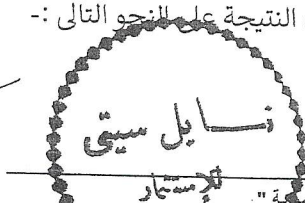 النتيجة على النحو التالى :-
نايل سيتى
للإستثمار
ة".